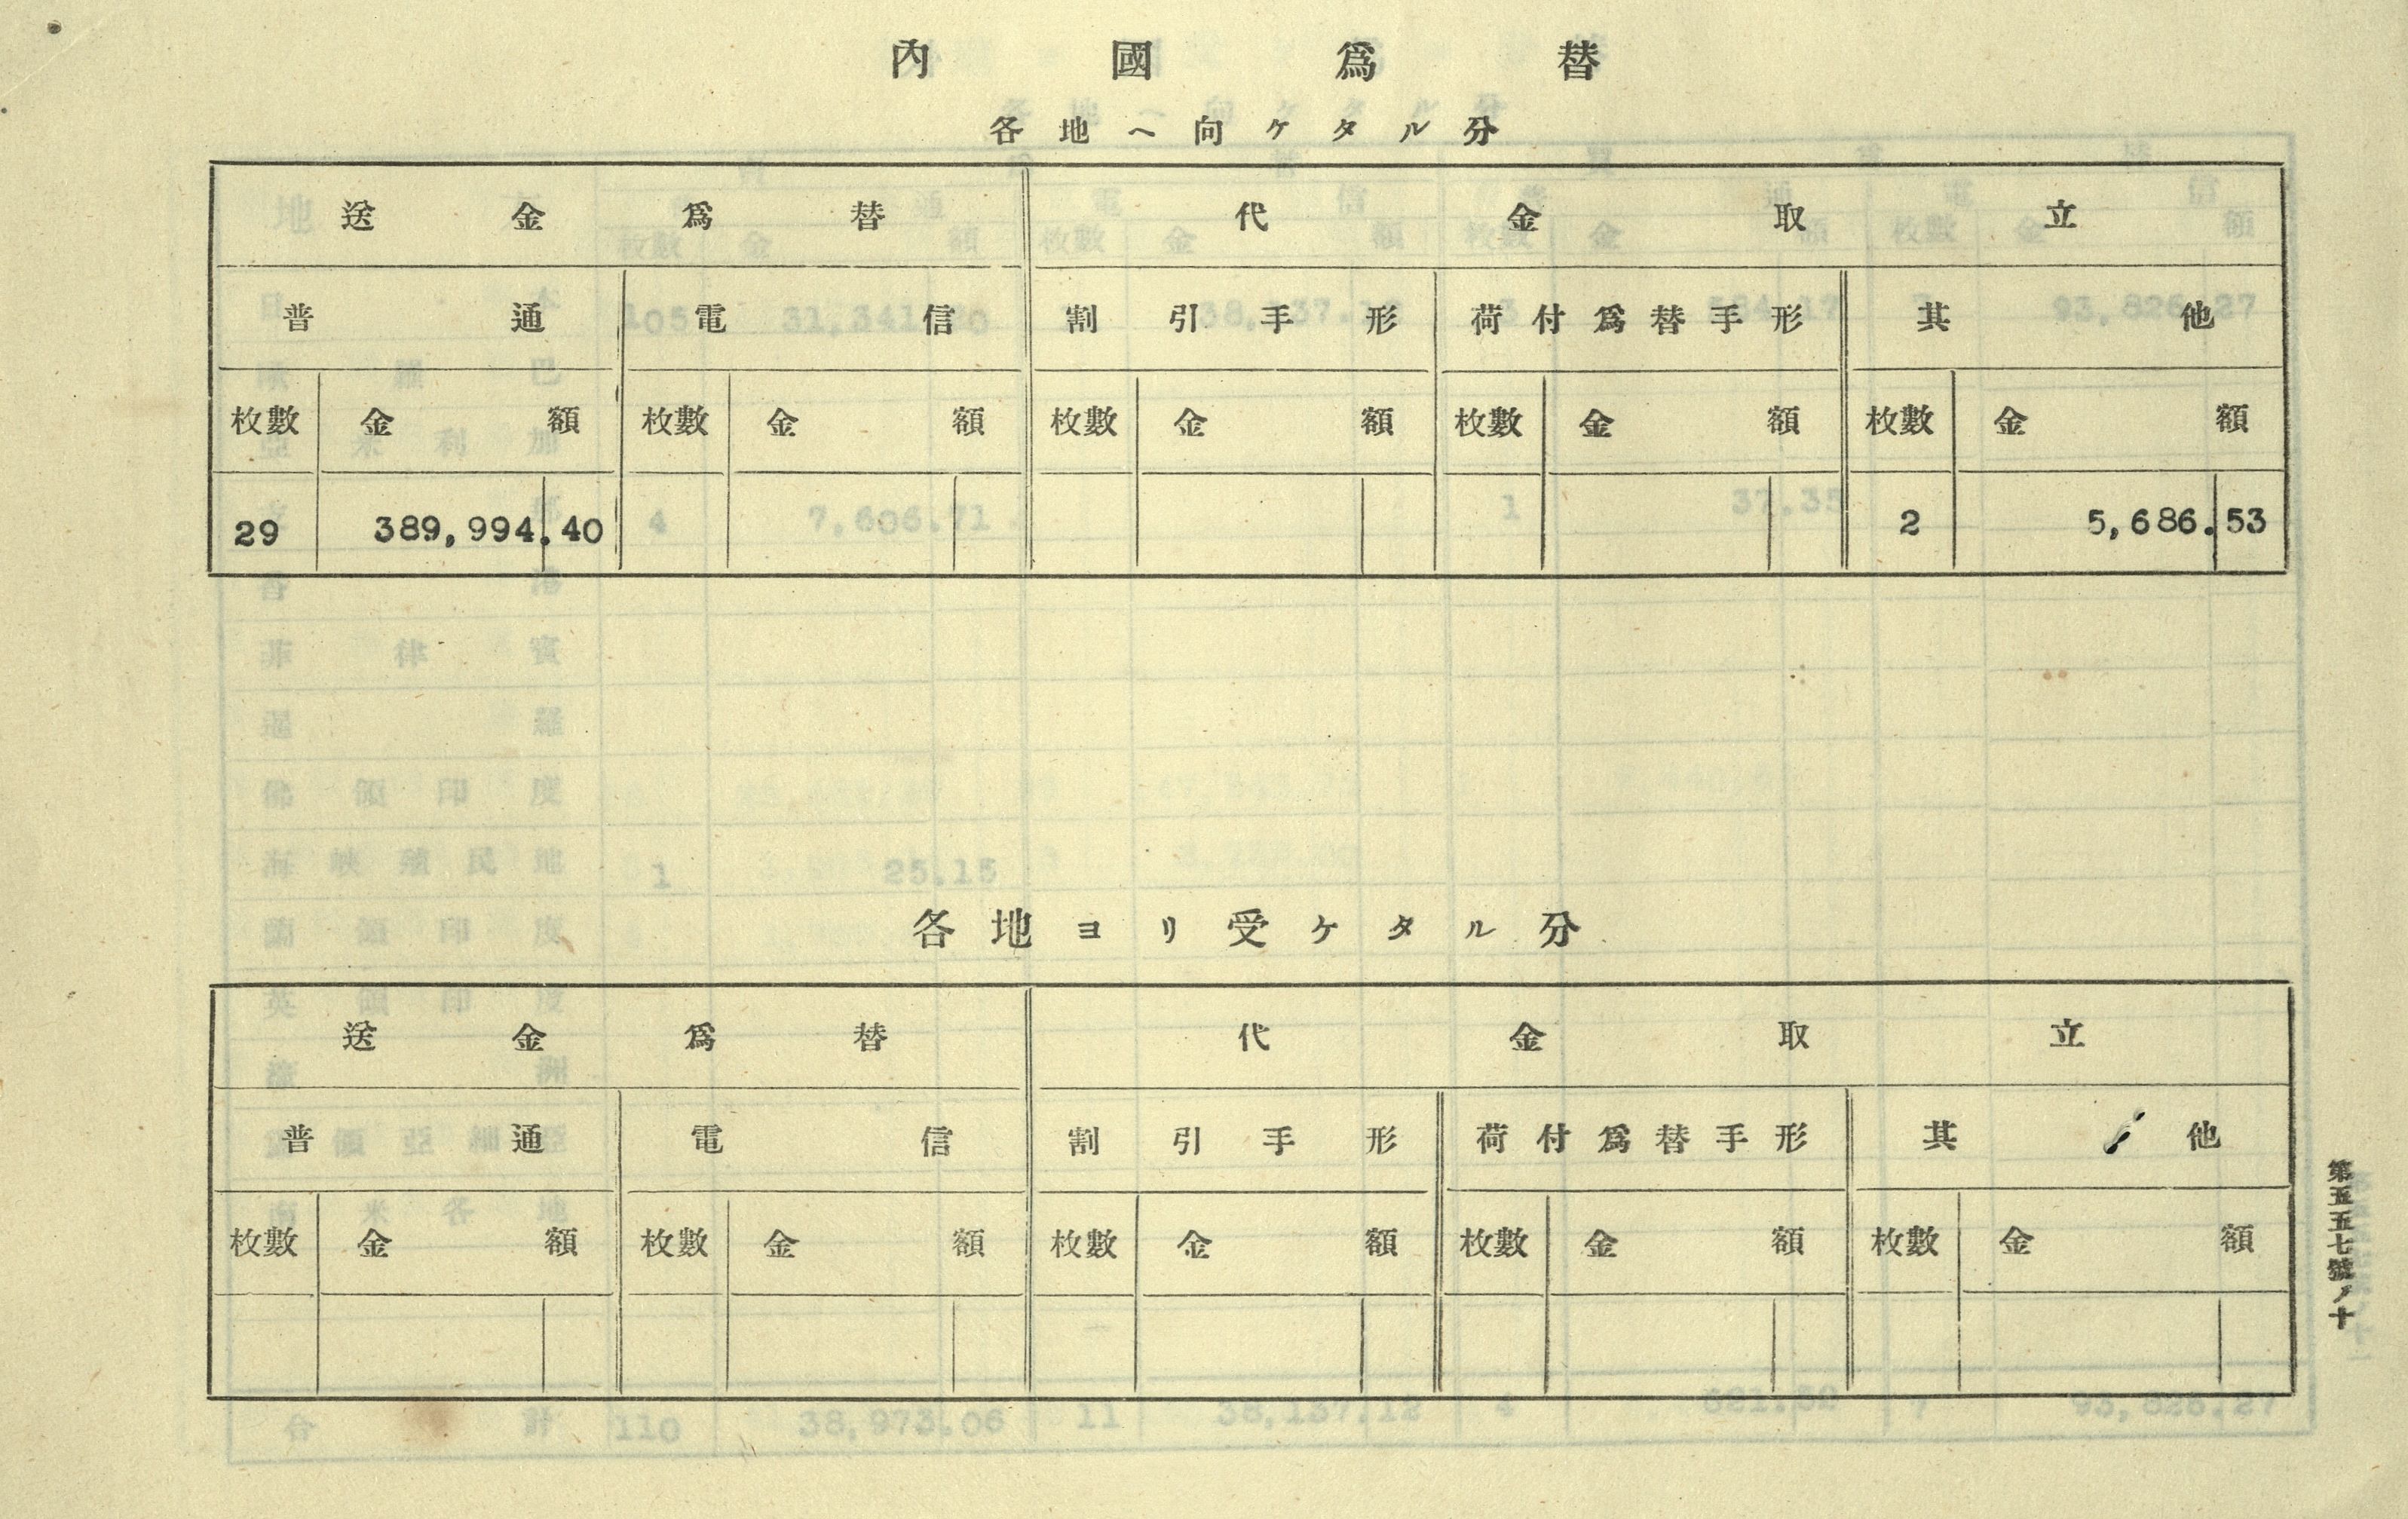 內國爲替
各地ヘ向ケタル分
送金爲替 代金取立
普通 電信 割引手形 荷付爲替手形 其他
枚數 金額 枚數 金額 枚數 金額 枚數 金額 枚數 金額
29 389,994.40 2 5,686.53
各地ヨリ受ケタル分
送金爲替 代金取立
普通 電信 割引手形 荷付爲替手形 其他
枚數 金額 枚數 金額 枚數 金額 枚數 金額 枚數 金額
第五五七號ノ十